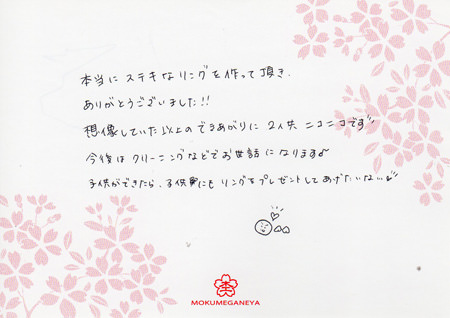 本当に ステキなリングを作って頂き、
ありがとうございました!!
想像していた以上のできあがりに 2人共 ニコニコです♡
今後は クリーニングなどで お世話になります♪
子供ができたら、子供達にも リングをプレゼントしてあげたいな♡
MOKUMEGANEYA